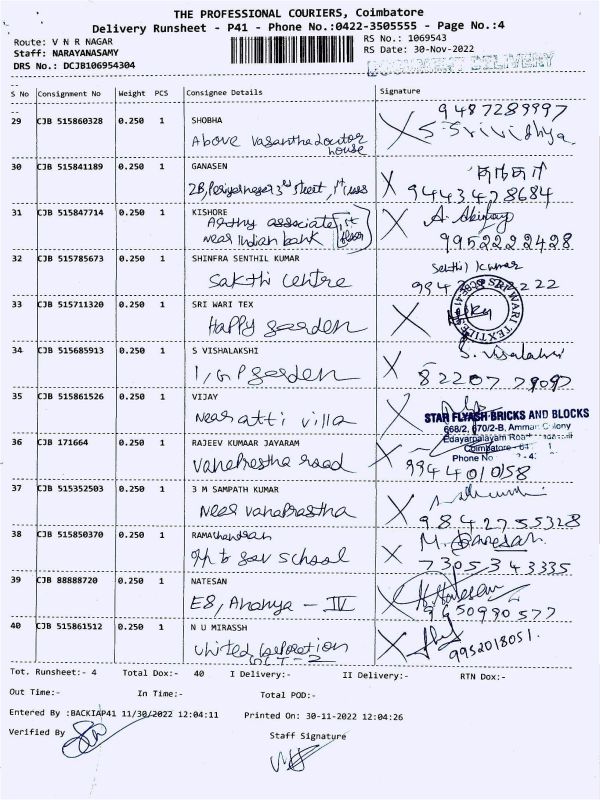 THE PROFESSIONAL COURIERS, Coimbatore
Delivery Runsheet - P41 - Phone No.:0422-3505555 - Page No.:4
Route: V N R NAGAR
RS No.: 1069543
Staff: NARAYANASAMY
RS Date: 30-Nov-2022
DRS No.: DCJB106954304
DOCUMENT DELIVERY
S No Consignment No Weight PCS Consignee Details Signature
29 CJB 515860328 0.250 1 SHOBHA 9487289997
Above Vasantha Doctor house S. Srividhya
30 CJB 515841189 0.250 1 GANASEN
2B, Periyar nagar 3rd street, 9443478684
31 CJB 515847714 0.250 1 KISHORE
Arthy associate 1st floor
near Indian bank 9952222428
32 CJB 515785673 0.250 1 SHINFRA SENTHIL KUMAR Senthil Kumar
Sakthi Centre
33 CJB 515711320 0.250 1 SRI WARI TEX
Happy garden SRI WARI TEXTILES
34 CJB 515685913 0.250 1 S VISHALAKSHI S. Visalakshi
1, G P garden 82207 79097
35 CJB 515861526 0.250 1 VIJAY
Near atti villa STAR FLYASH BRICKS AND BLOCKS
668/2, 670/2-B, Amman Colony
36 CJB 171664 0.250 1 RAJEEV KUMAAR JAYARAM Edayarpalayam Road
Coimbatore - 641
Phone No
Vanaprestha road 9944010158
37 CJB 515352503 0.250 1 3 M SAMPATH KUMAR
Near vanaprastha 9842755328
38 CJB 515850370 0.250 1 RAMAchandran M. Ganesan
opp to gov school 7305343335
39 CJB 88888720 0.250 1 NATESAN Natesan
E8, Ananya - IV 9450990577
40 CJB 515861512 0.250 1 N U MIRASSH
United Corporation 9952018051.
Tot. Runsheet:- 4 Total Dox:- 40 I Delivery:- II Delivery:- RTN Dox:-
Out Time:- In Time:- Total POD:-
Entered By :BACKIAP41 11/30/2022 12:04:11 Printed On: 30-11-2022 12:04:26
Verified By Staff Signature